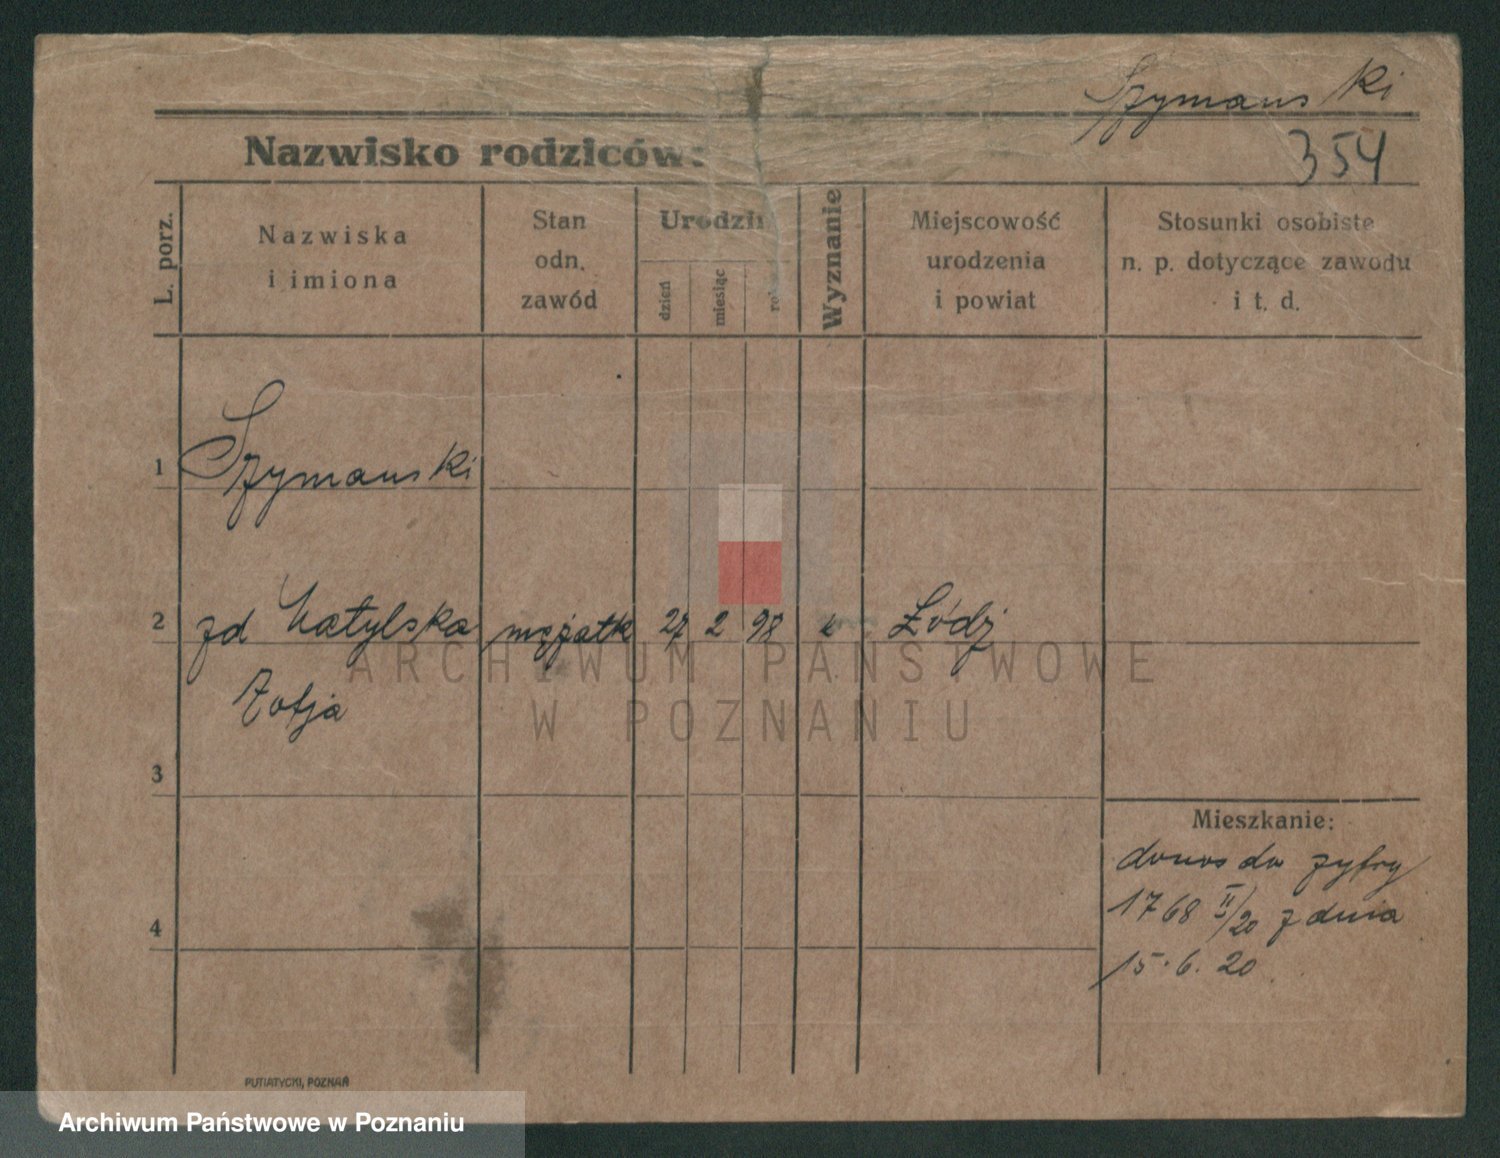 Szymanski
354
Nazwisko rodziców:
L. porz.
Nazwiska
i imiona
Stan
odn.
zawód
Urodzin
dzień
miesiąc
rok
Wyznanie
Miejscowość
urodzenia
i powiat
Stosunki osobiste
n. p. dotyczące zawodu
i t. d.
1 Szymanski
2 zd mężatk 27 2 98 k Łódź
Zofja
3
4
Mieszkanie:
donos do cyfry
1768 II/20 z dnia
15.6.20
PUTIATYCKI, POZNAŃ
ARCHIWUM PAŃSTWOWE
W POZNANIU
Archiwum Państwowe w Poznaniu